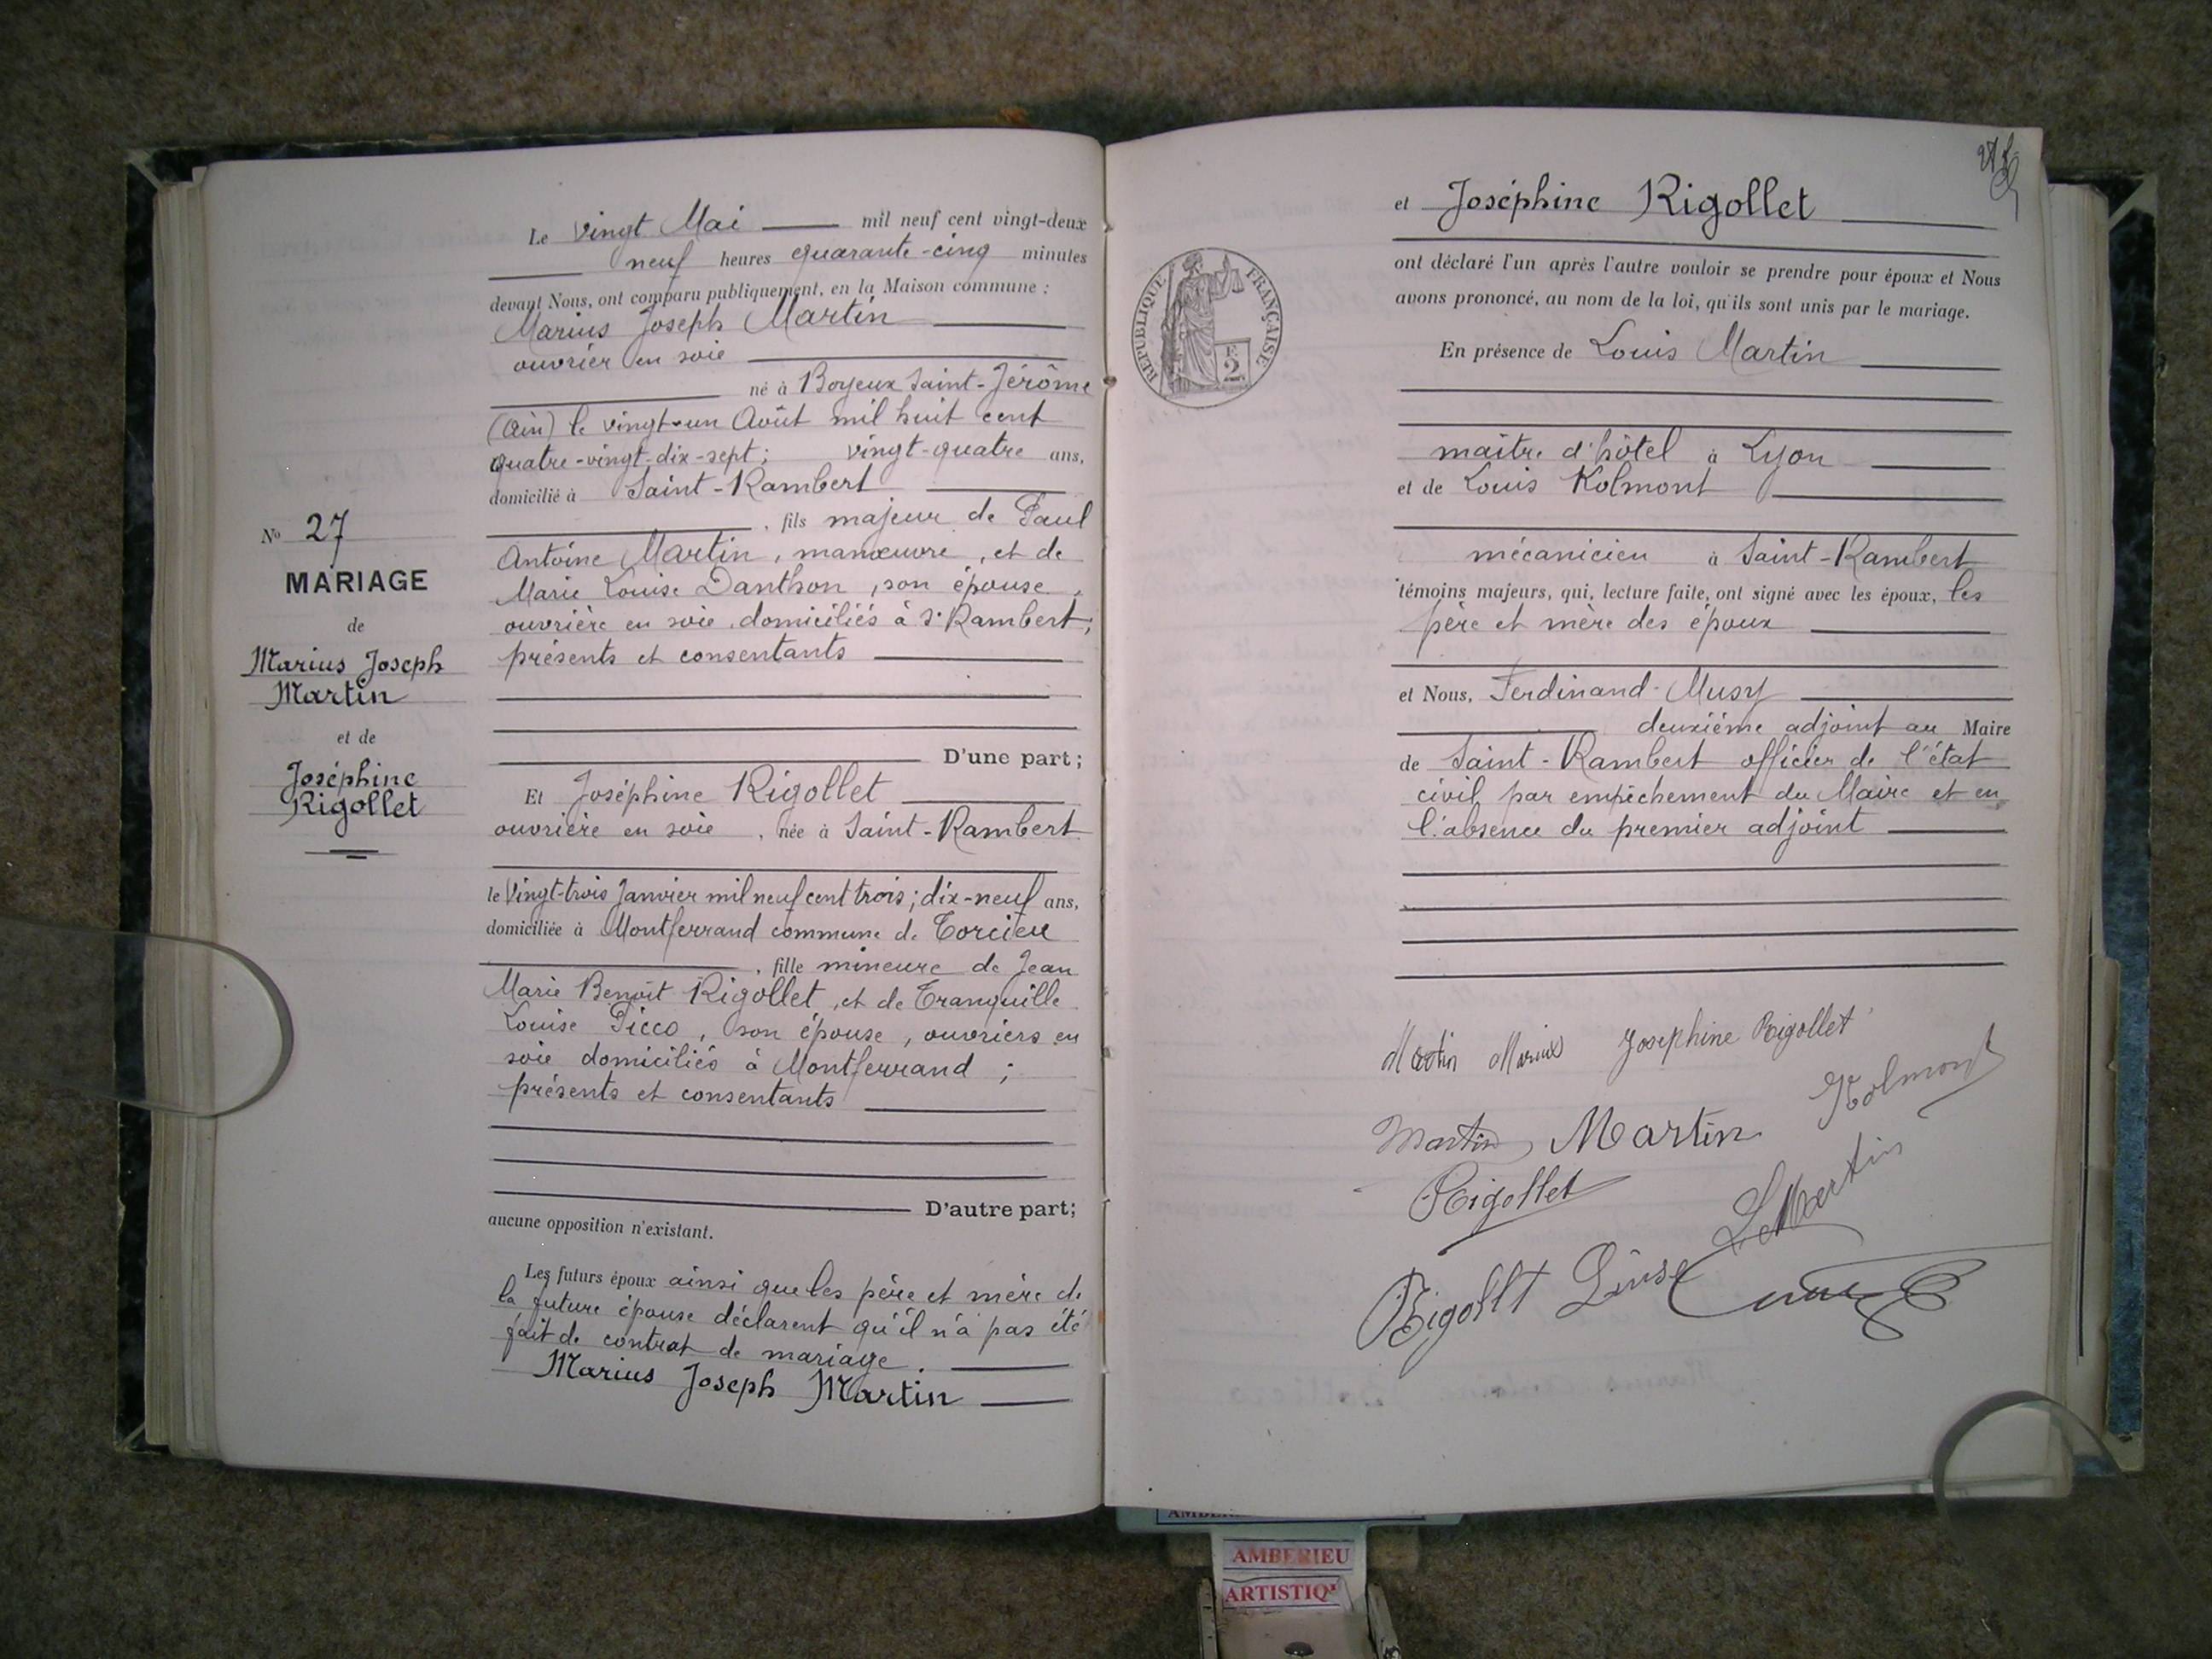 N° 27
MARIAGE
de
Marius Joseph
Martin
et de
Joséphine
Rigollet
Le vingt Mai mil neuf cent vingt-deux
neuf heures quarante-cinq minutes
devant Nous, ont comparu publiquement, en la Maison commune :
Marius Joseph Martin
ouvrier en soie
né à Boyeux Saint-Jérôme
(Ain) le vingt-un Août mil huit cent
quatre-vingt-dix-sept; vingt-quatre ans,
domicilié à Saint-Rambert
, fils majeur de Paul
Antoine Martin, manœuvre, et de
Marie Louise Danthon, son épouse,
ouvrière en soie, domiciliés à St Rambert;
présents et consentants
D'une part;
Et Joséphine Rigollet
ouvrière en soie, née à Saint-Rambert
le Vingt-trois Janvier mil neuf cent trois; dix-neuf ans,
domiciliée à Montferrand commune de Torcieu
, fille mineure de Jean
Marie Benoît Rigollet, et de Tranquille
Louise Picco, son épouse, ouvriers en
soie domiciliés à Montferrand;
présents et consentants
D'autre part;
aucune opposition n'existant.
Les futurs époux ainsi que les père et mère de
la future épouse déclarent qu'il n'a pas été
fait de contrat de mariage.
Marius Joseph Martin
et Joséphine Rigollet
ont déclaré l'un après l'autre vouloir se prendre pour époux et Nous
avons prononcé, au nom de la loi, qu'ils sont unis par le mariage.
RÉPUBLIQUE FRANÇAISE
2
En présence de Louis Martin
maître d'hôtel à Lyon
et de Louis Kolmont
mécanicien à Saint-Rambert
témoins majeurs, qui, lecture faite, ont signé avec les époux, les
père et mère des époux
et Nous, Ferdinand Musy
deuxième adjoint au Maire
de Saint-Rambert officier de l'état
civil par empêchement du Maire et en
l'absence du premier adjoint
Martin Marius Josephine Rigollet
Kolmont
Martin Martin
Rigollet L Martin
Rigollt Linse
AMBERIEU
ARTISTIQ